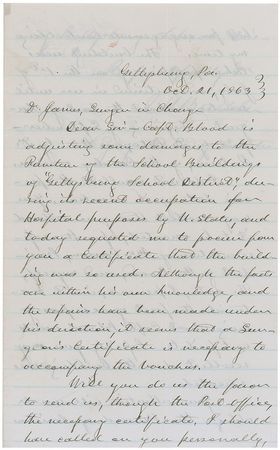 Gettysburg, Pa.
Oct. 21, 1863
Dr James, Surgeon in Charge
Dear Sir – Capt. Blood is
adjusting some damages to the
of the School Buildings
of "Gettysburg School District," du-
ring its recent occupation for
Hospital purposes by U. States, and
today requested me to procure from
you a certificate that the build
ing was so used. Although the facts
are within his own knowledge, and
the repairs have been made under
his direction, it seems that a Sur-
geon's Certificate is necessary to
accompany the vouchers.
Will you do us the favor
to send us, through the Post office,
the necessary certificate. I should
have called on you personally,